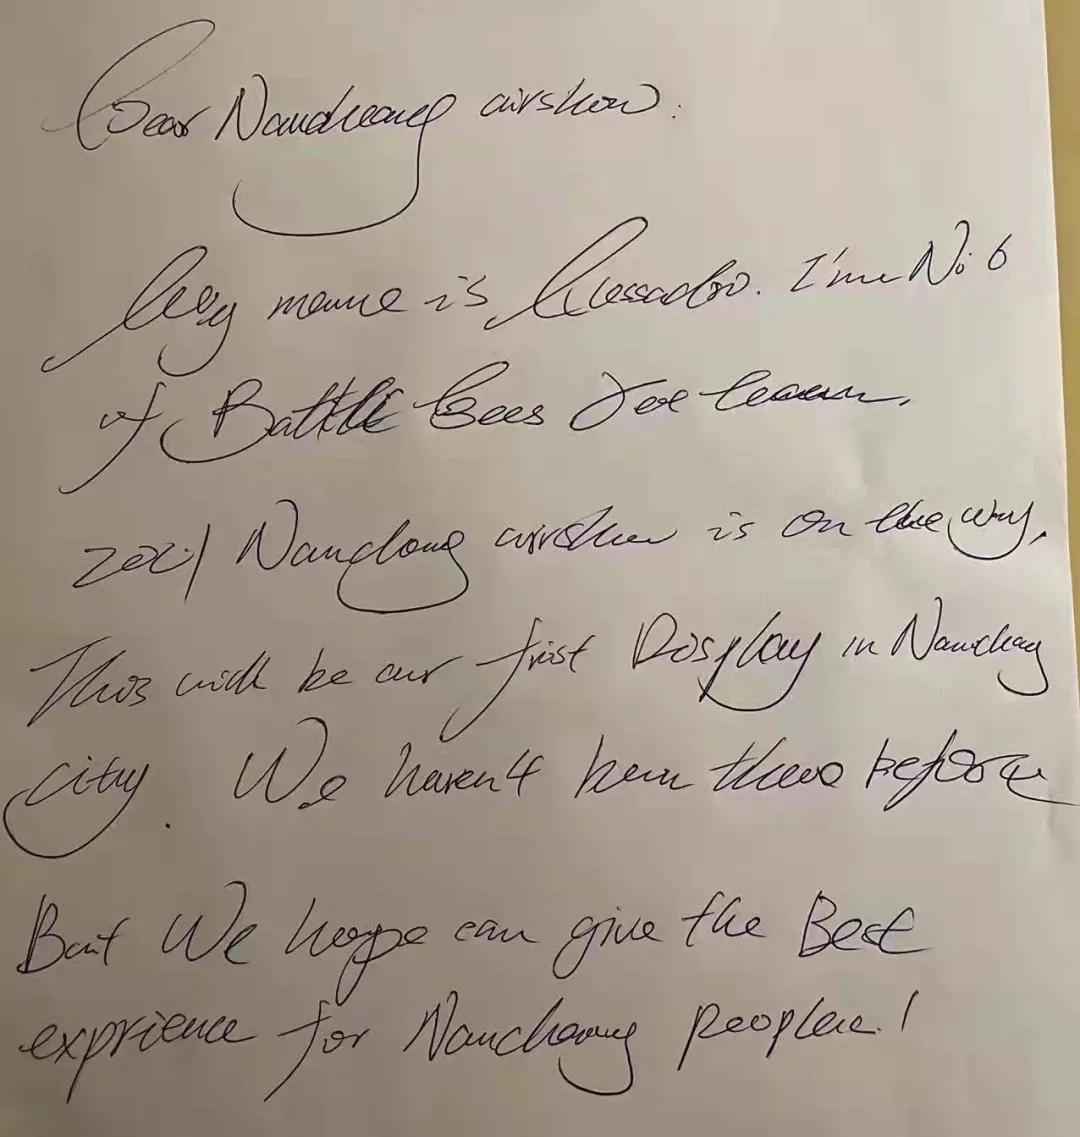 Dear Nanchang airshow:
My name is Alessadro. I'm No 6
of Battle Bees Joe team,
2021 Nanchang airshow is on the way,
This will be our first Display in Nanchang
city. We haven't been there before
But We hope can give the Best
exprience for Nanchang people!